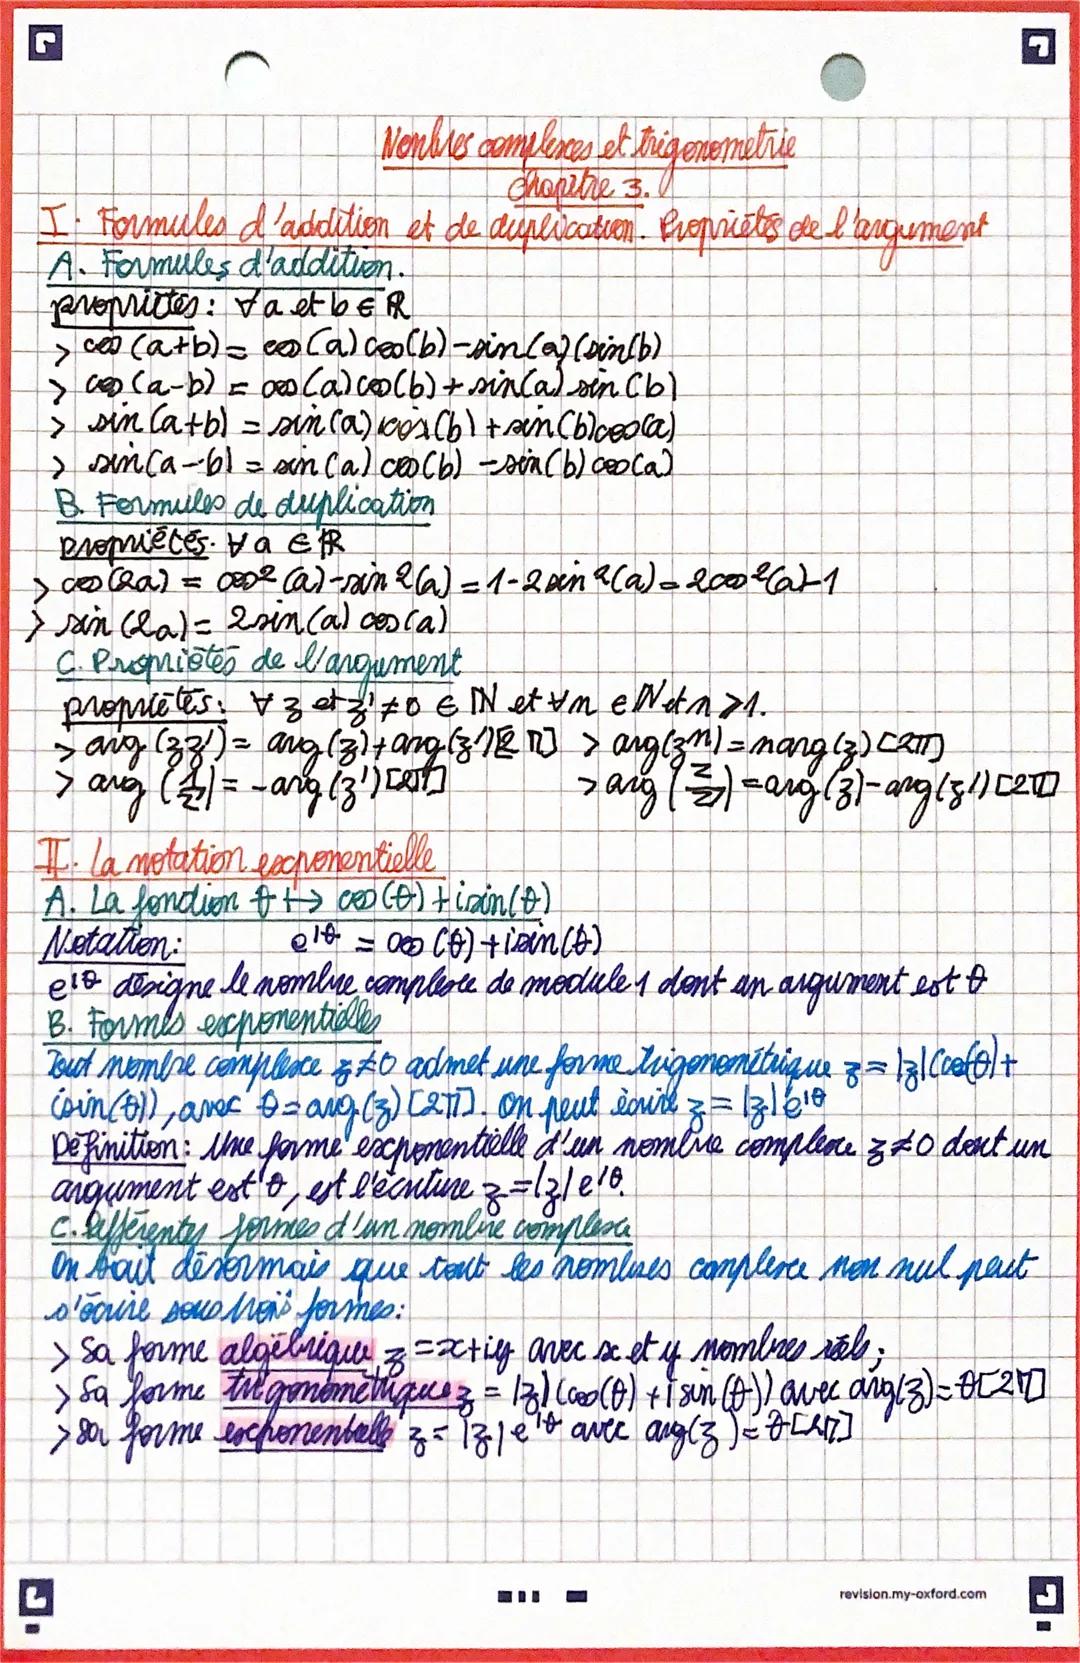 Nombres complexes et trigonometrie
Chapitre 3.
I. Formules d'addition et de duplication. Propriétés de l'argument
A. Formules d'addition.
propriétés: ∀ a et b ∈ ℝ
> cos (a+b) = cos(a) cos(b) - sin(a) (sin(b)
> cos (a-b) = cos(a) cos(b) + sin(a) sin(b)
> sin (a+b) = sin(a) cos(b) + sin(b) cos(a)
> sin(a-b) = sin(a) cos(b) - sin(b) cos(a)
B. Formules de duplication
propriétés. ∀ a ∈ ℝ
> cos(2a) = cos²(a) - sin²(a) = 1 - 2sin²(a) = 2cos²(a)-1
> sin (2a) = 2sin(a) cos(a)
C. Propriétés de l'argument
propriétés: ∀ z et z' ≠ 0 ∈ ℕ et ∀ n ∈ ℕ et n ⩾ 1.
> arg (zz') = arg(z) + arg(z') [2π] > arg(zⁿ) = n arg(z) [2π]
> arg (1/z') = -arg(z') [2π] > arg (z/z') = arg(z) - arg(z') [2π]
II. La notation exponentielle
A. La fonction θ ↦ cos(θ) + isin(θ)
Notation: e^iθ = cos(θ) + isin(θ)
e^iθ désigne le nombre complexe de module 1 dont un argument est θ
B. Formes exponentielles
Tout nombre complexe z ≠ 0 admet une forme trigonométrique z = |z| (cos(θ) +
isin(θ)), avec θ = arg(z) [2π]. On peut écrire z = |z| e^iθ
Définition: Une forme exponentielle d'un nombre complexe z ≠ 0 dont un
argument est θ, est l'écriture z = |z| e^iθ.
C. Différentes formes d'un nombre complexe
On sait désormais que tout les nombres complexe non nul peut
s'écrire sous trois formes:
> Sa forme algébrique z = x+iy avec x et y nombres réels;
> Sa forme trigonométrique z = |z| (cos(θ) + i sin(θ)) avec arg(z) = θ [2π]
> Sa forme exponentielle z = |z| e^iθ avec arg(z) = θ [2π]
revision.my-oxford.com